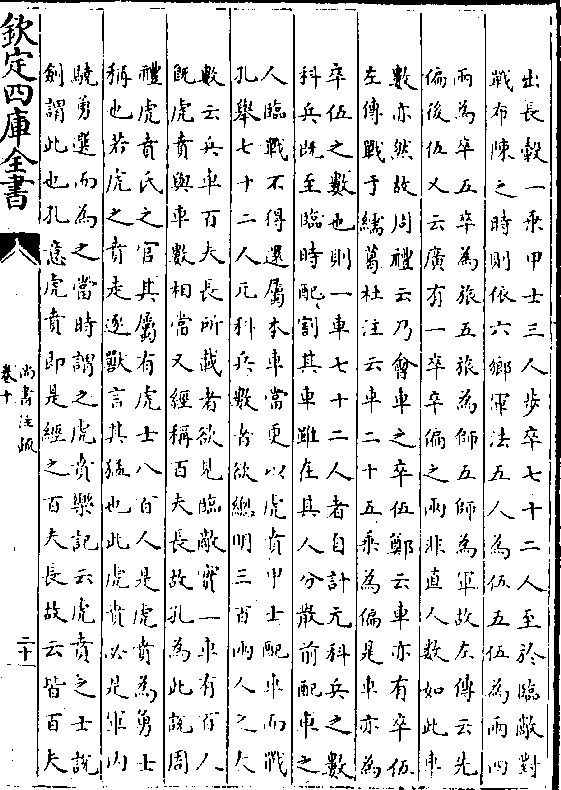 出長轂一乗甲士三人步卒七十二人至於臨敵對
戰布陳之時則依六鄉軍法五人為伍五伍為兩四
兩為卒五卒為旅五旅為師五師為軍故左傳云先
偏後伍又云廣有一卒卒偏之兩非直人數如此車
數亦然故周禮云乃會車之卒伍鄭云車亦有卒伍
左傳戰于繻葛杜注云車二十五乗為偏是車亦為
卒伍之數也則一車七十二人者自計元科兵之數
科兵既至臨時配割其車雖在其人分散前配車之
人臨戰不得還屬本車當更以虎賁甲士配車而戰
孔舉七十二人元科兵數者欲總明三百兩人之大
數云兵車百夫長所載者欲見臨敵實一車有百人
既虎賁與車數相當又經稱百夫長故孔為此說周
禮虎賁氏之官其屬有虎士八百人是虎賁為勇士
稱也若虎之賁走逐獸言其猛也此虎賁必是軍内
驍勇選而為之當時謂之虎賁樂記云虎賁之士說
劍謂此也孔意虎賁即是經之百夫長故云皆百夫
欽定四庫全書
尚書注疏
卷十
二十